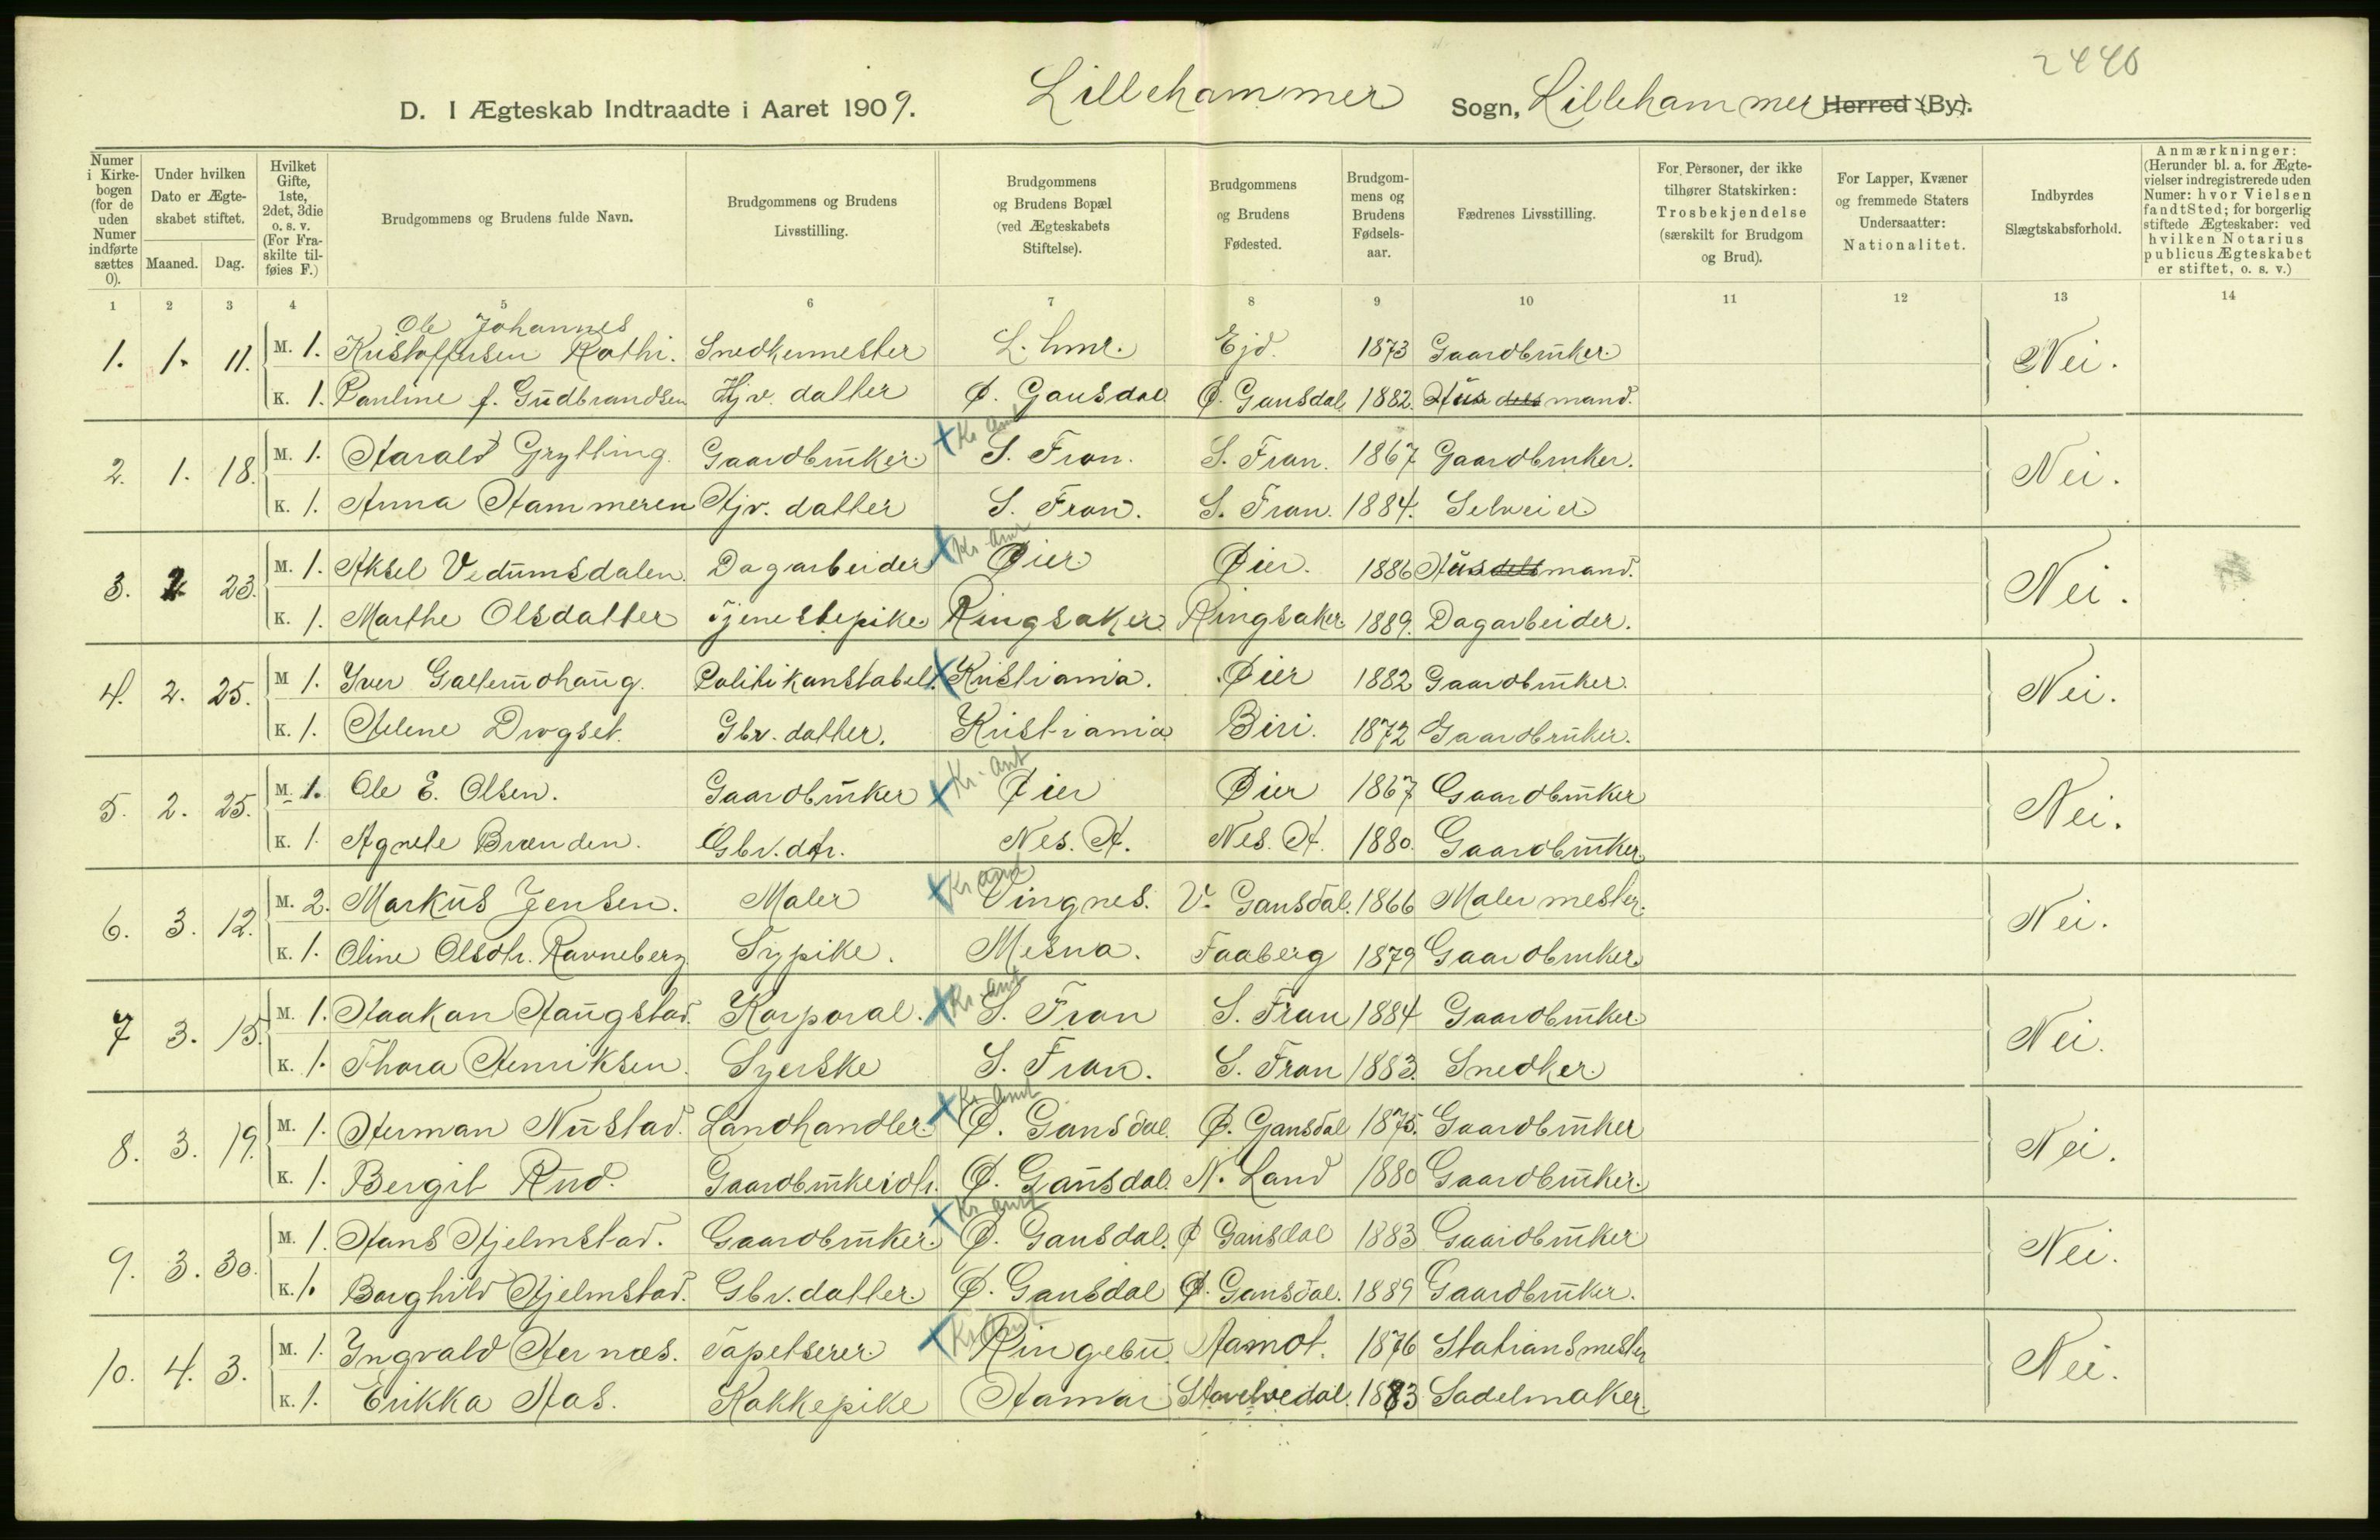 2440
D. I Ægteskab Indtraadte i Aaret 1909. Lillehammer Sogn, Lillehammer Herred (By).
Numer i Kirkebogen (for de uden Numer indførte sættes 0).
Under hvilken Dato er Ægteskabet stiftet.
Maaned. Dag.
Hvilket Gifte, 1ste, 2det, 3die o. s. v. (For Fraskilte tilføies F.)
Brudgommens og Brudens fulde Navn.
Brudgommens og Brudens Livsstilling.
Brudgommens og Brudens Bopæl (ved Ægteskabets Stiftelse).
Brudgommens og Brudens Fødested.
Brudgommens og Brudens Fødselsaar.
Fædrenes Livsstilling.
For Personer, der ikke tilhører Statskirken: Trosbekjendelse (særskilt for Brudgom og Brud).
For Lapper, Kvæner og fremmede Staters Undersaatter: Nationalitet.
Indbyrdes Slægtskabsforhold.
Anmærkninger: (Herunder bl. a. for Ægtevielser indregistrerede uden Numer: hvor Vielsen fandt Sted; for borgerlig stiftede Ægteskaber: ved hvilken Notarius publicus Ægteskabet er stiftet, o. s. v.)
1 2 3 4 5 6 7 8 9 10 11 12 13 14
Ole Johannes
1. 1. 11. M. 1. Kristoffersen Snedkermester L. hmr. Ejd. 1873 Gaardbruker. Nei.
K. 1. Pauline f. Gudbrandsen Hjv. datter Ø. Gausdal Ø. Gausdal 1882. Husdelsmand.
Kr. amt
2. 1. 18. M. 1. Harald Grytting. Gaardbruker. S. Fron. S. Fron. 1867 Gaardbruker. Nei.
K. 1. Anna Hammeren Hjv. datter S. Fron. S. Fron. 1884. Selveier
Kr. amt
3. 2. 23. M. 1. Aksel Vedumsdalen. Dagarbeider Øier Øier. 1886 Husdelsmand. Nei.
K. 1. Marthe Olsdatter Tjenestepike. Ringsaker. Ringsaker 1889. Dagarbeider.
4. 2. 25. M 1. Iver Politikonstabel. Kristiania. Øier 1882 Gaardbruker. Nei.
K. 1. Helene Drogset. Gbr. datter. Kristiania Biri. 1872 Gaardbruker.
Kr. amt
5. 2. 25. M. 1. Ole E. Olsen. Gaardbruker Øier Øier 1867 Gaardbruker Nei.
K. 1. Agnete Brænden. Gbr. dtr. Nes. H. Nes. H. 1880. Gaardbruker
Kr amt
6. 3. 12. M. 2. Markus Jensen. Maler Vingnes. V. Gausdal. 1866 Malermester. Nei.
K. 1. Oline Olsdtr. Ravneberg. Sypike. Mesna. Faaberg 1879 Gaardbruker
Kr. amt
7 3. 15. M. 1. Haakon Haugstad. Korporal. S. Fron S. Fron 1884 Gaardbruker. Nei.
K. 1. Thora Henriksen. Syerske S. Fron. S. Fron 1883. Snedker.
Kr. amt
8. 3. 19. M. 1. Herman Nustad. Landhandler. Ø. Gausdal. Ø. Gausdal 1875. Gaardbruker Nei.
K. 1. Bergit Rud. Gaardbrukerdtr. Ø. Gausdal. N. Land 1880 Gaardbruker.
Kr. amt
9. 3. 30. M. 1. Hans Hjelmstad. Gaardbruker. Ø. Gausdal. Ø Gausdal 1883 Gaardbruker Nei.
K. 1. Borghild Hjelmstad. Gbr. datter. Ø. Gausdal Ø. Gausdal. 1889 Gaardbruker.
Kr. amt
10. 4. 3. M. 1. Ingvald Hernæs. Tapetserer. Ringebu. Aamot. 1876 Stationsmester Nei.
K. 1. Erikka Aas. Kokkepike Hamar 1883 Sadelmaker.